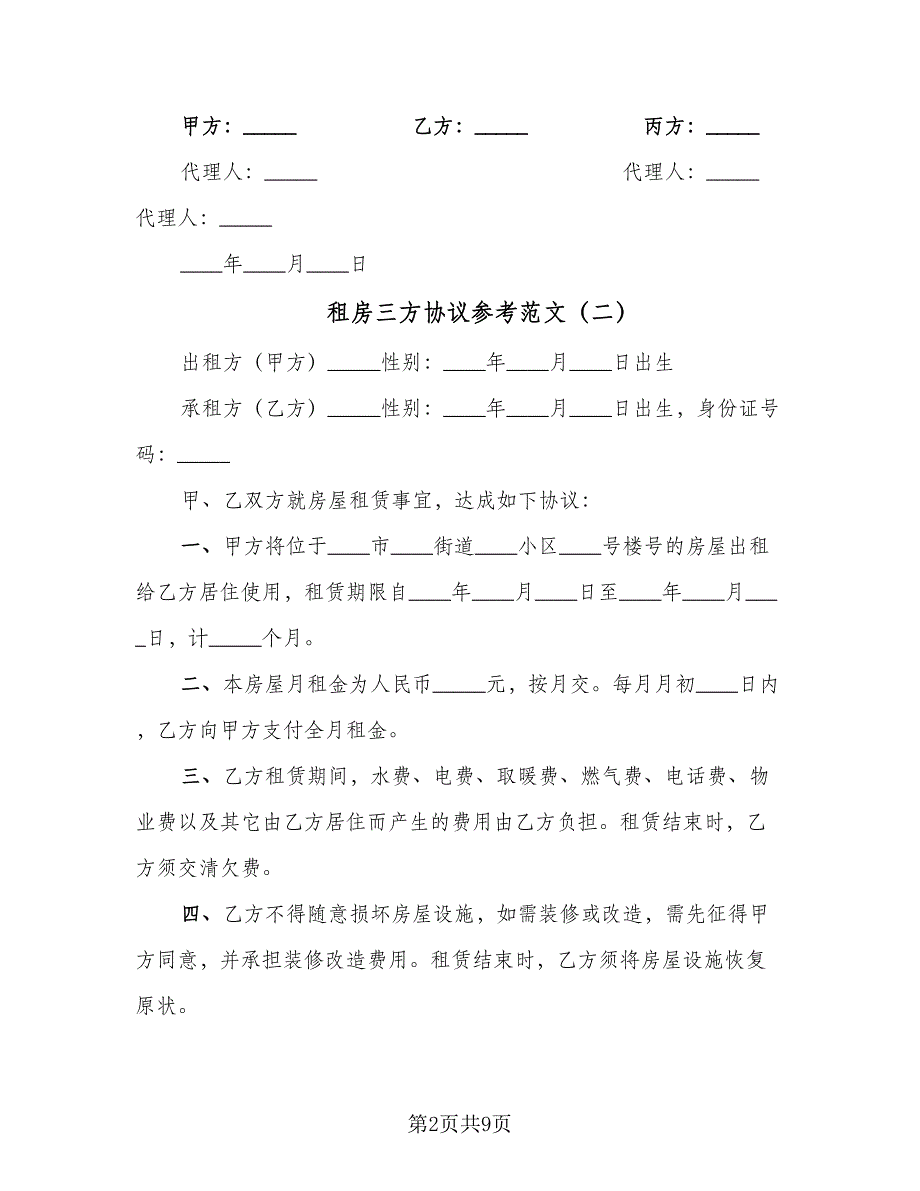 甲方：_____ 乙方：_____ 丙方：_____
代理人：_____ 代理人：_____
代理人：_____
____年____月____日
租房三方协议参考范文（二）
出租方（甲方）_____性别：____年____月____日出生
承租方（乙方）_____性别：____年____月____日出生，身份证号
码：_____
甲、乙双方就房屋租赁事宜，达成如下协议：
一、甲方将位于____市____街道____小区____号楼号的房屋出租
给乙方居住使用，租赁期限自____年____月____日至____年____月___
_日，计_____个月。
二、本房屋月租金为人民币_____元，按月交。每月月初____日内
，乙方向甲方支付全月租金。
三、乙方租赁期间，水费、电费、取暖费、燃气费、电话费、物
业费以及其它由乙方居住而产生的费用由乙方负担。租赁结束时，乙
方须交清欠费。
四、乙方不得随意损坏房屋设施，如需装修或改造，需先征得甲
方同意，并承担装修改造费用。租赁结束时，乙方须将房屋设施恢复
原状。
第2页共9页